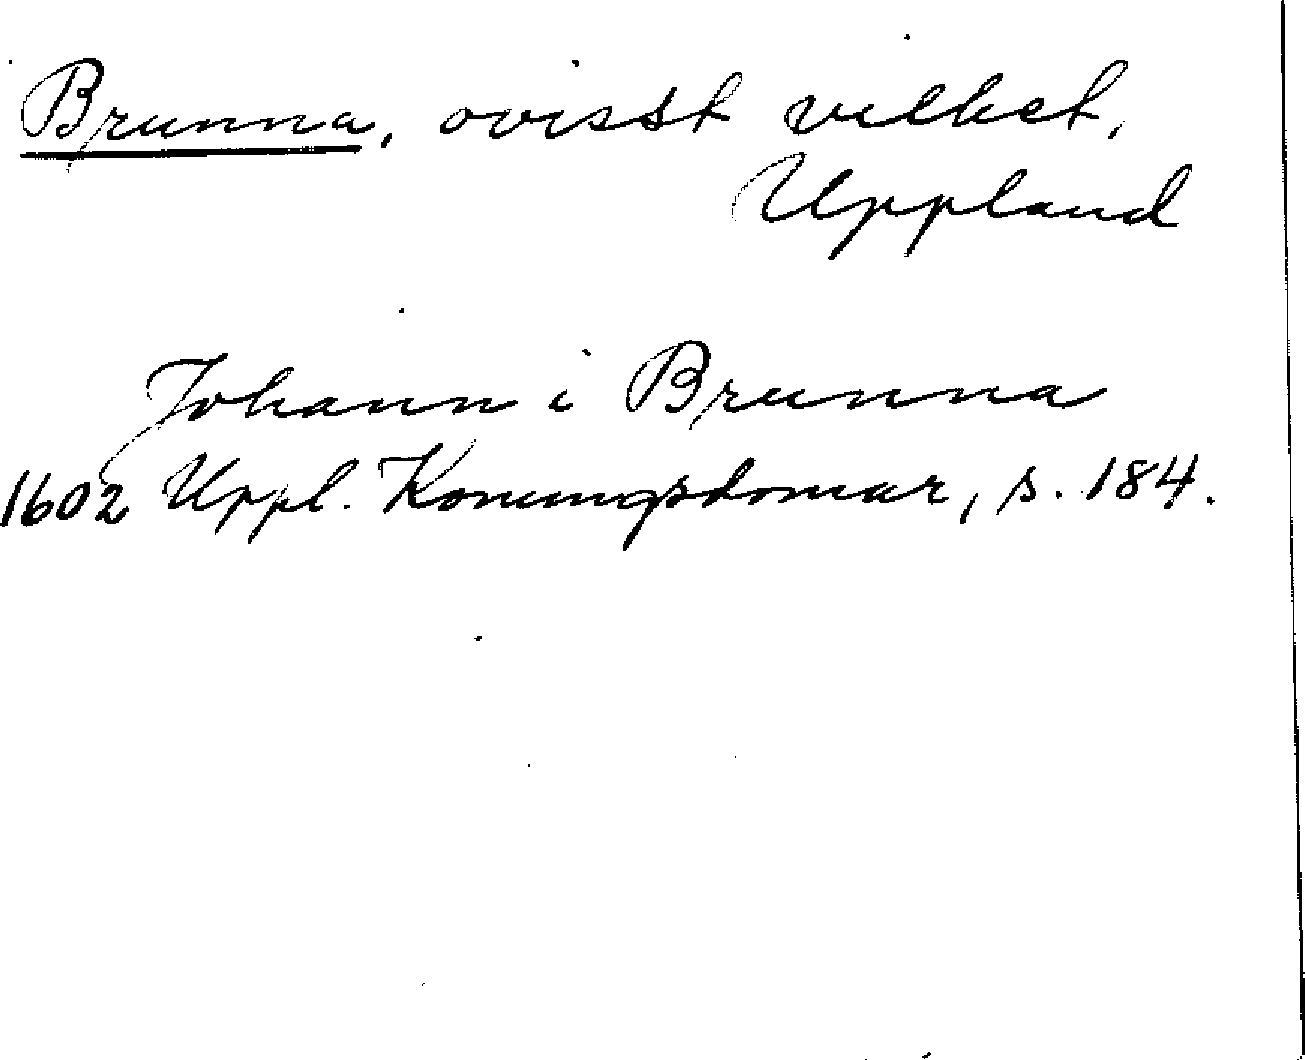 Brunna, ovisst vilket,
Uppland
Johann i Brunna
1602 Uppl. Konungsdomar, s. 184.